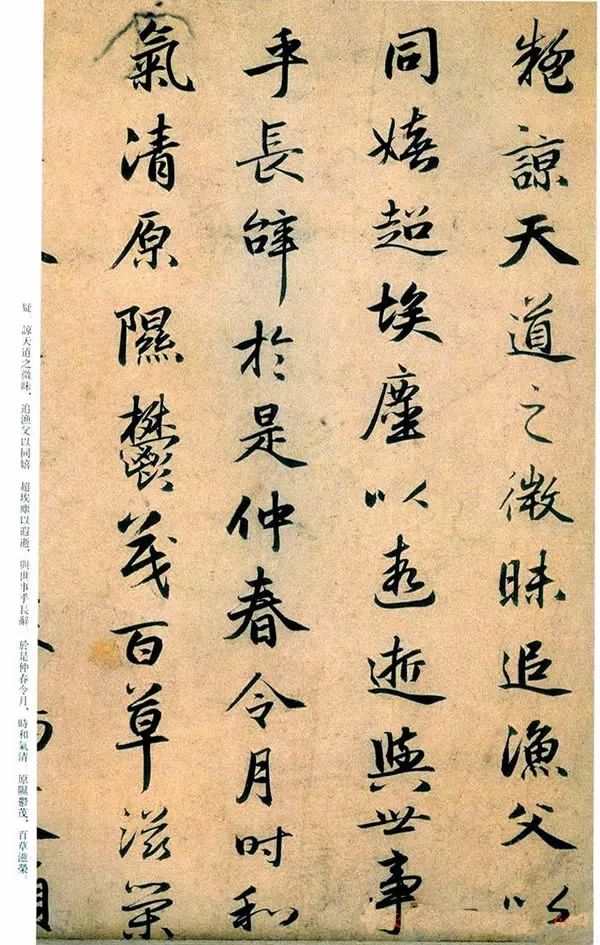 疑諒天道之微昧追漁父以
同嬉超埃塵以遐逝與世事
乎長辭於是仲春令月時和
氣清原隰鬱茂百草滋榮
疑 諒天道之微昧、追漁父以同嬉 超埃塵以遐逝、與世事乎長辭 於是仲春令月、時和氣清 原隰鬱茂、百草滋榮。